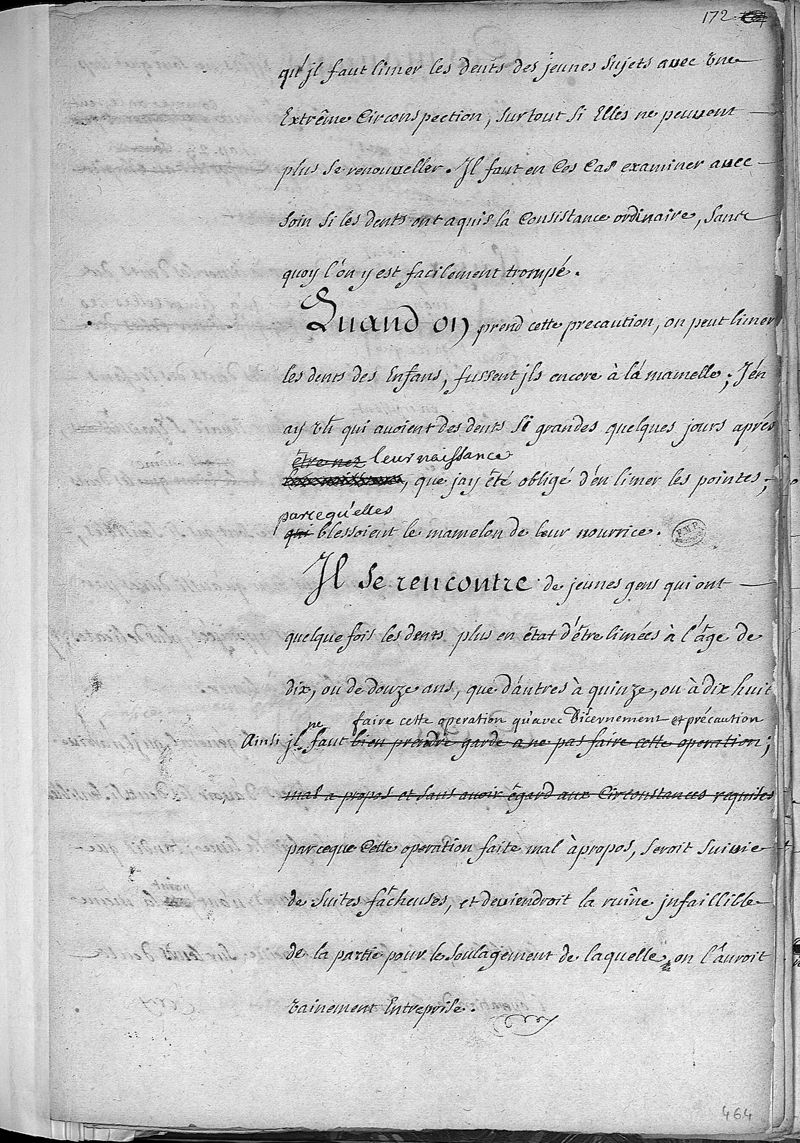 172
qu'jl faut limer les dents des jeunes sujets avec vne
Extrême Circonspection, surtout si Elles ne peuvent
plus se renouveller. Il faut en Ces Cas examiner avec
soin si les dents ont aquis la Consistance ordinaire, sans
quoy l'on y est facilement trompé.
Quand on prend cette precaution, on peut limer
les dents des Enfans, fussent jls encore à la mamelle; J'én
ay vû qui avoient des dents si grandes quelques jours aprés
être nez leur naissance
, que jay été obligé d'én limer les pointes,
parcequ'elles
qui blessoient le mamelon de leur nourrice.
Il se rencontre de jeunes gens qui ont
quelque fois les dents plus en état d'être limées à l'âge de
dix, ou de douze ans, que d'autres à quinze, ou à dix huit
ne faire cette operation qu'avec Dicernement et précaution
Ainsi jl faut bien prendre garde a ne pas faire cette operation;
mal a propos et sans avoir égard aux Circonstances requises
parceque Cette operation faite mal àpropos, seroit suivie
de suites fâcheuses, et deviendroit la ruîne jnfaillible
de la partie pour le soulagement de laquelle on l'auroit
vainement Entreprise.
464